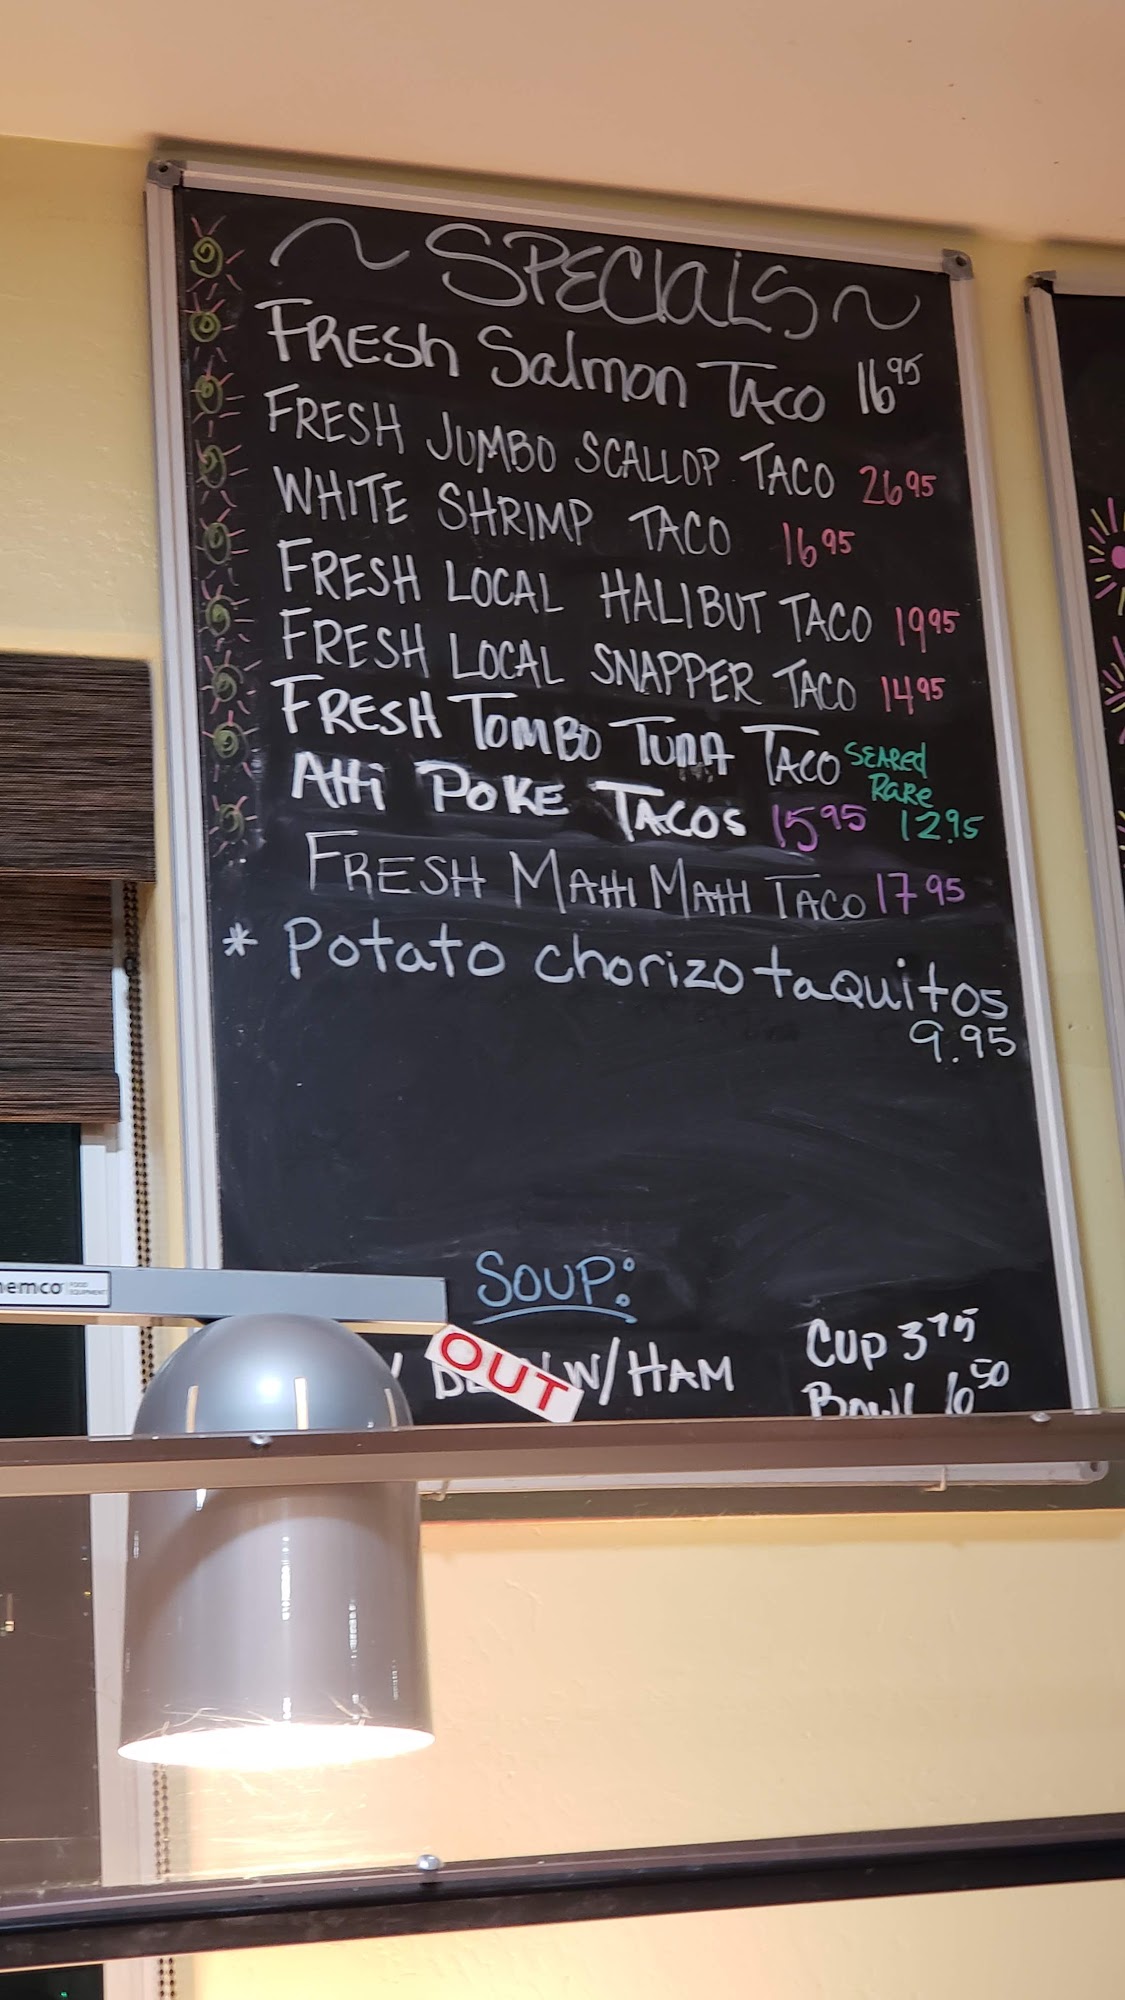 ~ SPECIALS ~
FRESH Salmon TACO 16 95
FRESH JUMBO SCALLOP TACO 26 95
WHITE SHRIMP TACO 16 95
FRESH LOCAL HALIBUT TACO 19 95
FRESH LOCAL SNAPPER TACO 14 95
FRESH TOMBO TUNA TACO SEARED RARE 12.95
AHi POKE TACOS 15 95
FRESH MAHI MAHI TACO 17 95
* Potato chorizo taquitos
9.95
SOUP:
OUT
W/HAM
CUP 3 75
BOWL 6 50
FOOD EQUIPMENT